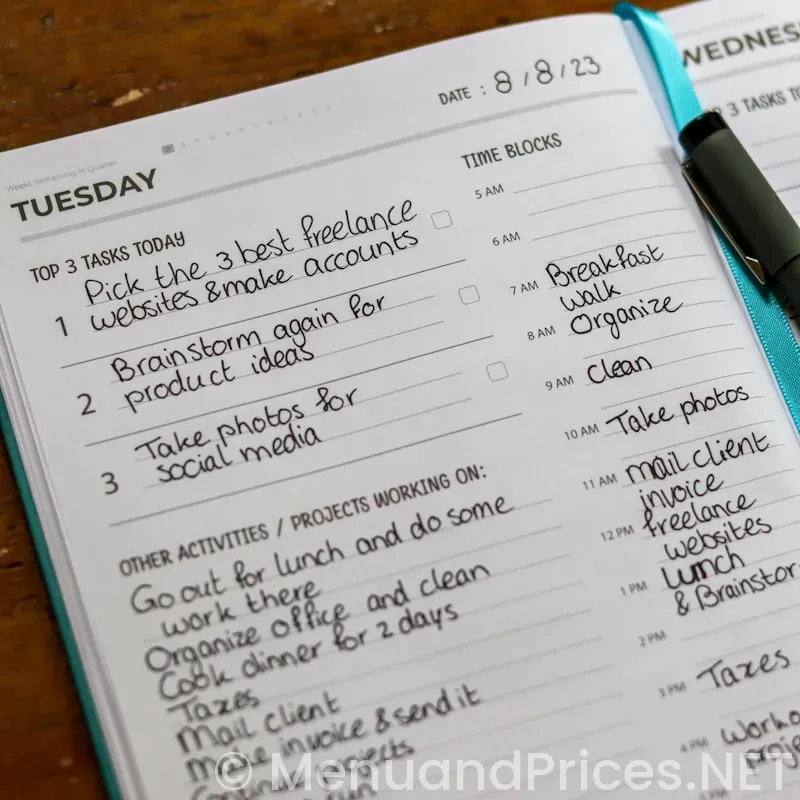 Weeks Remaining In Quarter
TUESDAY
DATE : 8 / 8 / 23
TOP 3 TASKS TODAY
1 Pick the 3 best freelance
websites & make accounts
2 Brainstorm again for
product ideas
3 Take photos for
social media
OTHER ACTIVITIES / PROJECTS WORKING ON:
Go out for lunch and do some
work there
Organize office and clean
Cook dinner for 2 days
Taxes
Mail client
Make invoice & send it
projects
run
TIME BLOCKS
5 AM
6 AM
7 AM Breakfast
walk
8 AM Organize
9 AM Clean
10 AM Take photos
11 AM mail client
invoice
12 PM freelance
websites
1 PM Lunch
& Brainstor
2 PM
3 PM Taxes
4 PM Worko
proje
WEDNES
3 TASKS TO
© MenuandPrices.NET